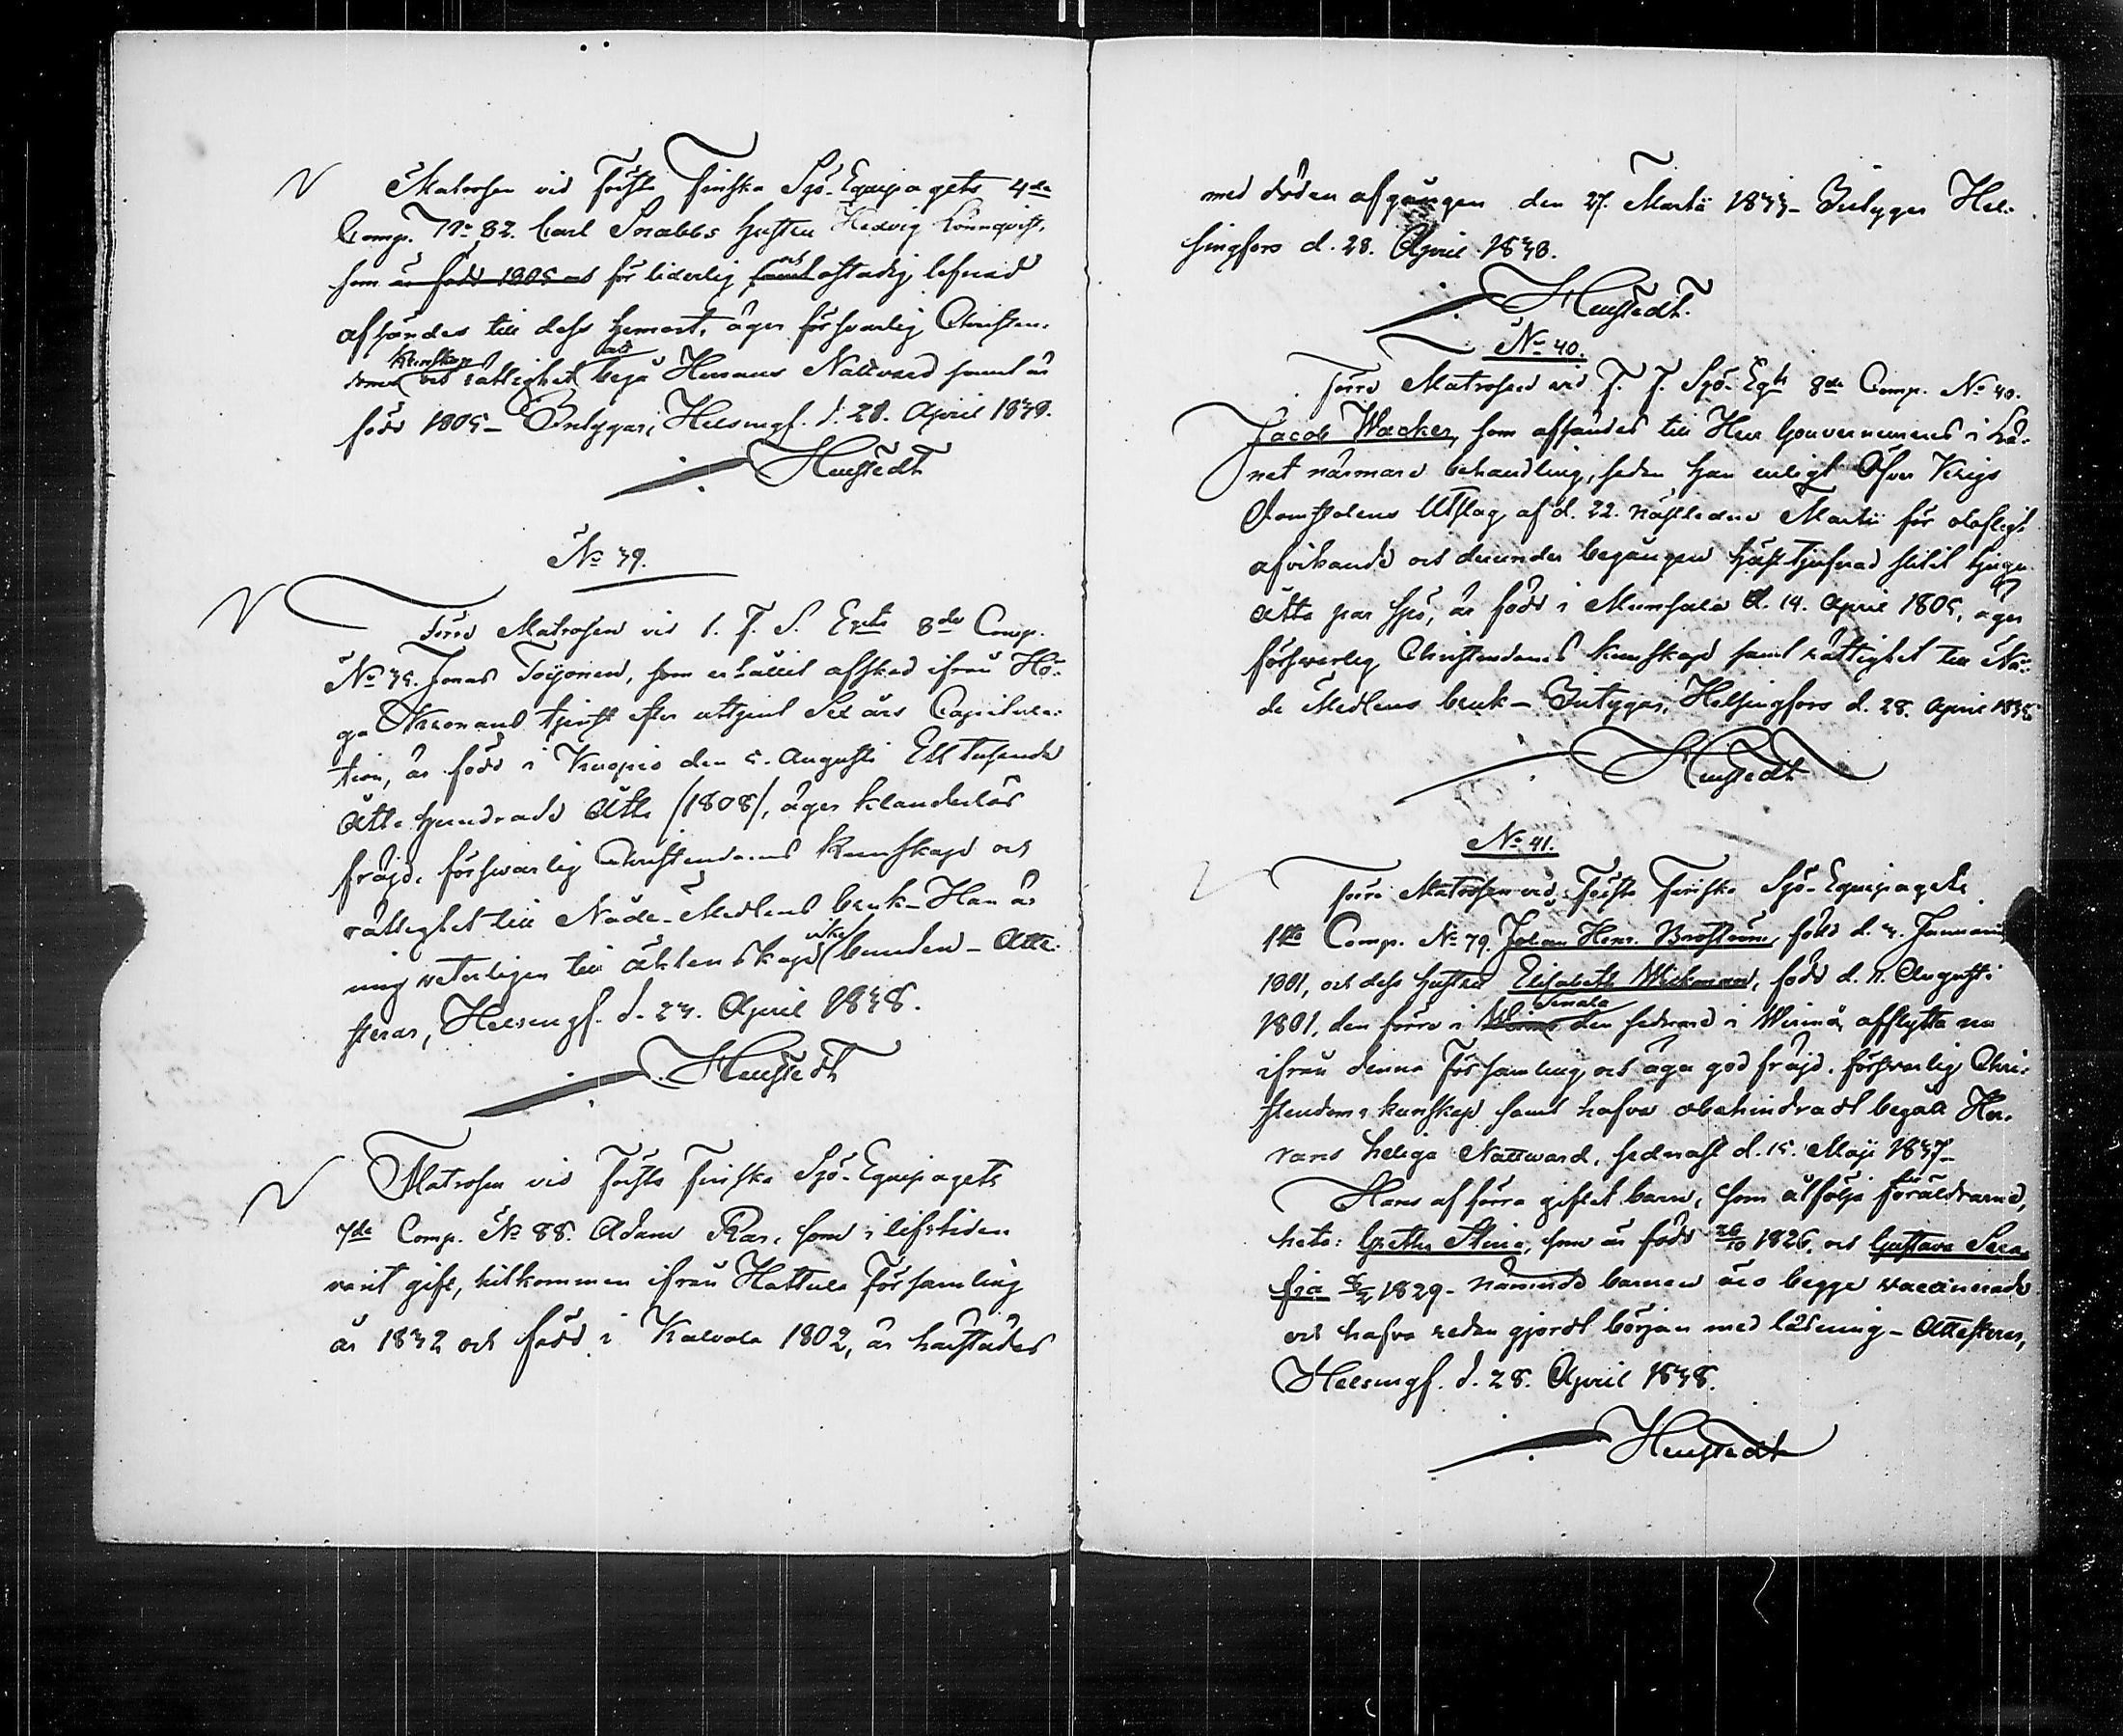 Matrosen vid Första Finska Sjö-Equipagets 4de
Comp. No 82. Carl Snabbs hustru Hedvig Lönnqvist,
som är född 1805 och för liderlig samt och ostadig lefnad
afsändes till dess hemort, äger försvarlig Christen-
doms kunskap och rättighet att begå Herrans Nattvard samt är
född 1805 - Betygar, Helsingf. d. 28. April 1838.
Hengstedt
No 39.
Förre Matrosen vid 1. F. S. Eqts 8de Comp.
No 35. Jonas Toijonen, som erhållit afsked ifrån Hö-
ga Kronans tjenst efter uttjent Sex års Capitula-
tion, är född i Kuopio den 5. Augusti Ett tusende
Åtta hundrade Åtta /1808/, äger klanderlös
fräjd, försvarlig Christendoms kunskap och
rättighet till Nåde-Medlens bruk - Han är
mig veterligen till äktenskap icke bunden - Atte-
steras, Helsingf. d. 23. April 1838.
Hengstedt
Matrosen vid Första Finska Sjö-Equipagets
7de Comp. No 88. Adam Ras, som i lifstiden
varit gift, hitkommen ifrån Hattula Församling
år 1832 och född i Kalvola 1802, är härstädes
med döden afgången den 27. Martii 1833 - Betygar Hel-
singfors d. 28. April 1838.
Hengstedt
No 40.
Förre Matrosen vid F. F. Sjö-Eqts 8de Comp. No 40.
Jacob Wacker, som afsändes till Herr Gouverneurens i Lä-
net närmare behandling, sedan han enligt Öfver Krigs
Domstolens Utslag af d. 22. nästledne Martii för olofligt
afvikande och derunder begången häst tjufnad slitit tjugu
åtta par spö, är född i Munsala d. 14. April 1805, äger
försvarlig Christendoms kunskap samt rättighet till Nå-
de Medlens bruk - Betygar, Helsingfors d. 28. April 1838
Hengstedt
No 41.
Förre Matrosen vid Första Finska Sjö-Equipagets
1sta Comp. No 79. Johan Henr. Broström, född d. 3. Januarii
1801, och dess hustru Elisabeth Wickman, född d. 11. Augusti
1801, den förre i Tenala den sednare i Wirmå, afflytta nu
ifrån denna Församling och äga god fräjd, försvarlig Chri-
stendoms kunskap samt hafva obehindradt begått Her-
rans heliga Nattvard, sednast d. 15. Maji 1837 -
Hans af förra giftet barn, som åtfölja föräldrarne,
heta: Gretha Stina, som är född 26/10 1826, och Gustava Sera-
fia 5/2 1829 - nämnde barnen äro begge vaccinerade
och hafva redan gjordt början med läsning - Attesteras,
Helsingf. d. 28. April 1838.
Hengstedt